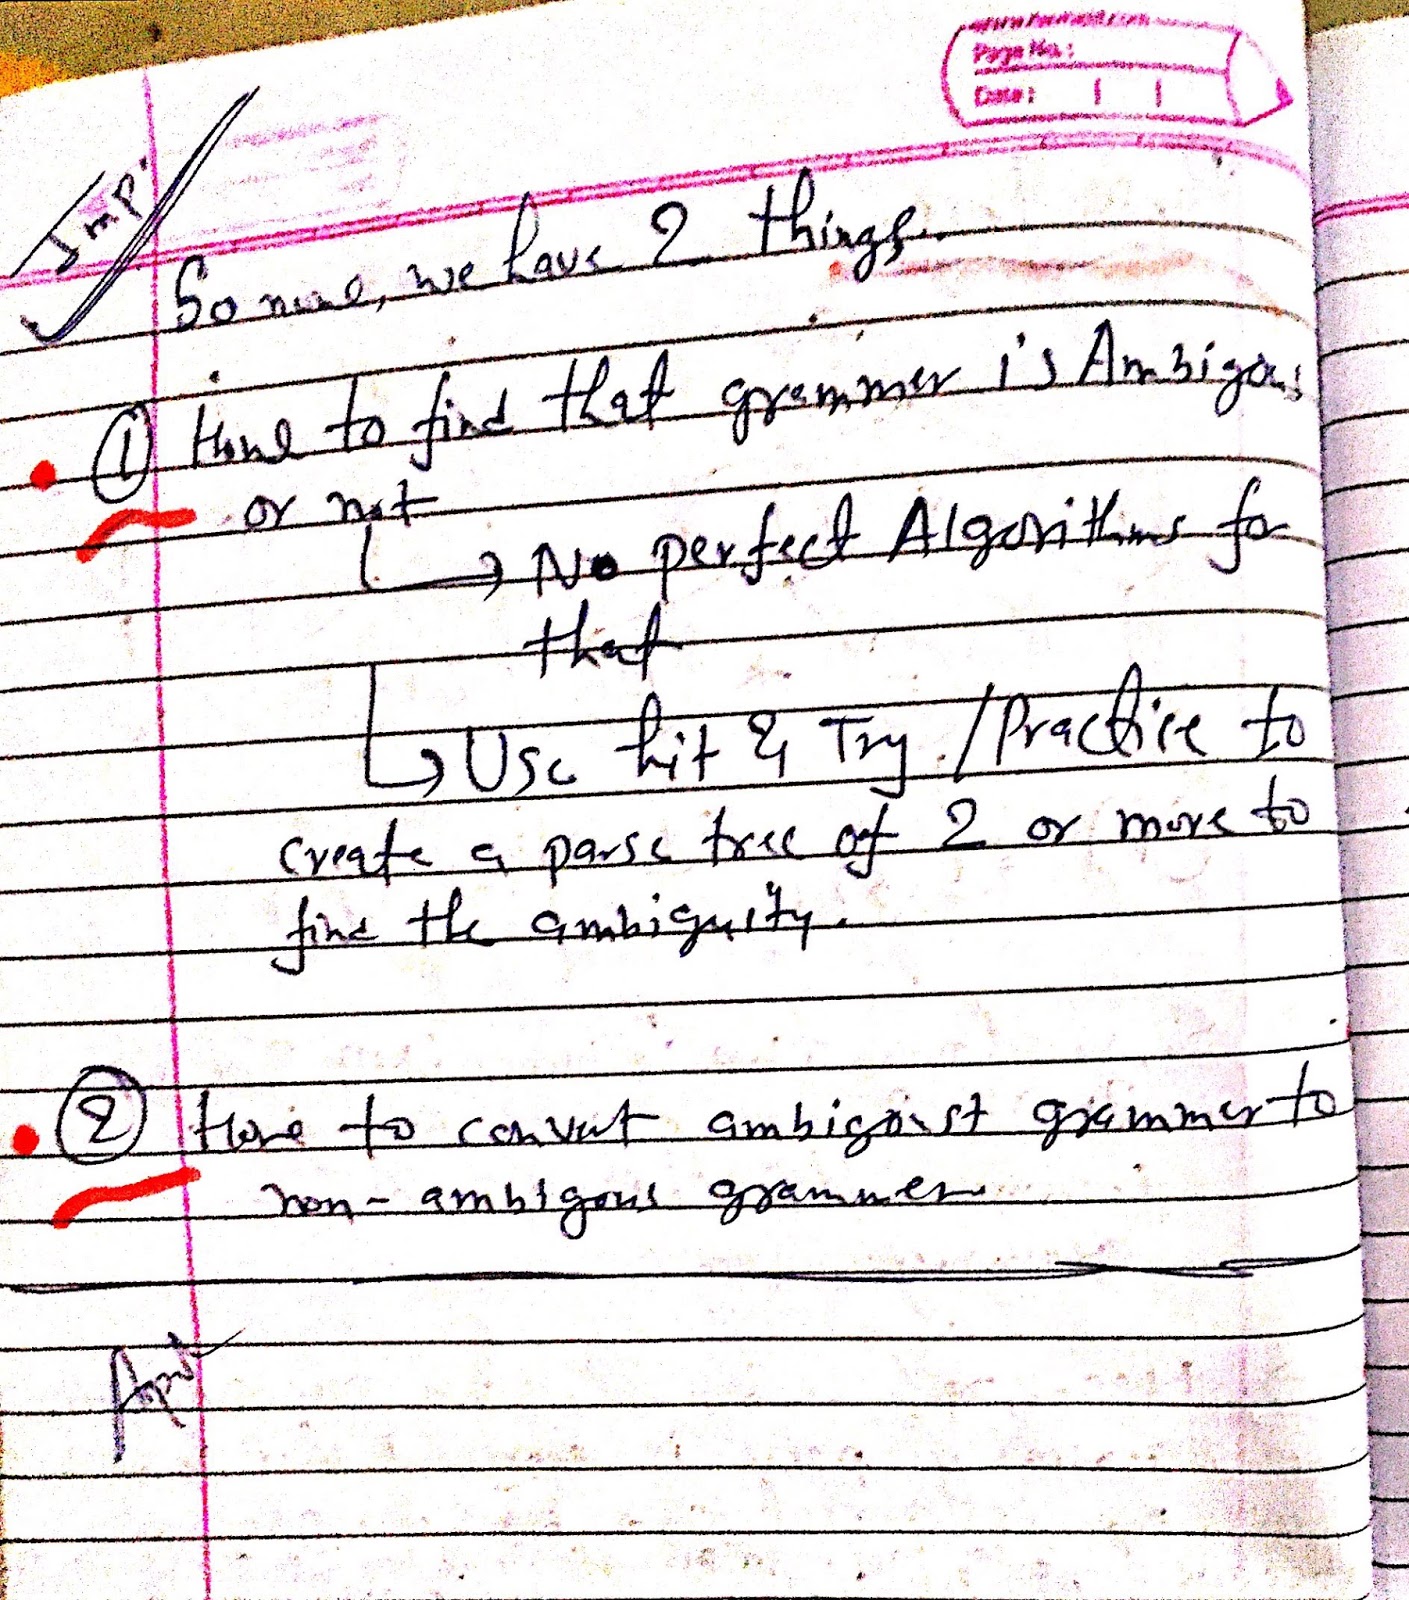 Page No.:
Date:
Imp.
So now, we have 2 things.
1 How to find that grammer is Ambigous
or not
→ No perfect Algorithms for
that
→ Use hit & Try / Practice to
create a parse tree of 2 or more to
find the ambiguity.
2 How to convert ambigoust grammer to
non-ambigous grammer